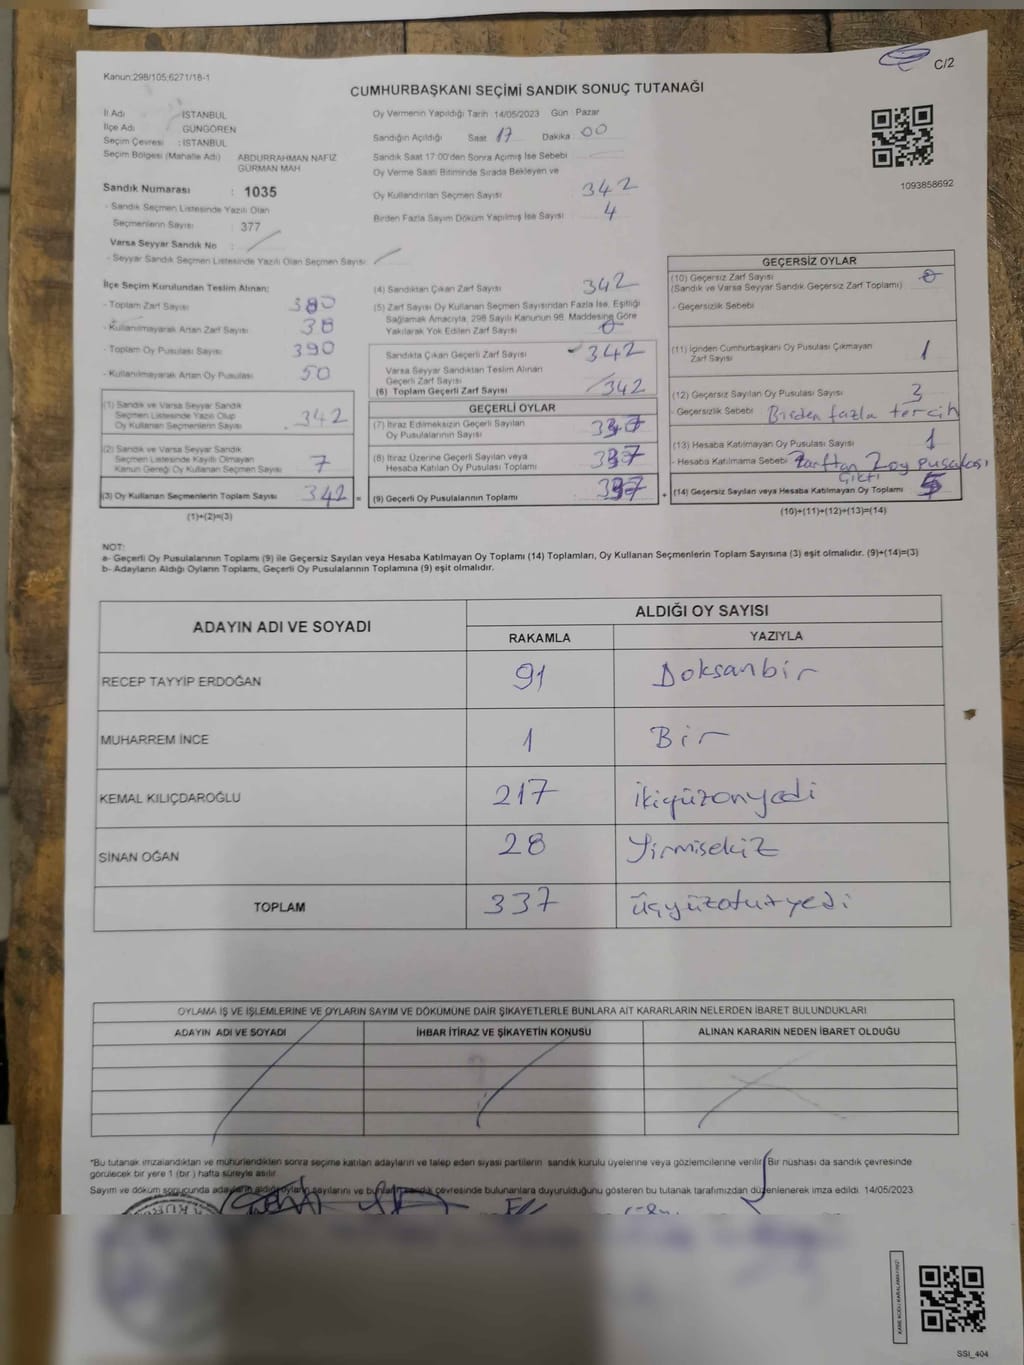 Kanun:298/105;6271/18-1
C/2
CUMHURBAŞKANI SEÇİMİ SANDIK SONUÇ TUTANAĞI
1093858692
İl Adı : İSTANBUL
İlçe Adı : GÜNGÖREN
Seçim Çevresi : İSTANBUL
Seçim Bölgesi (Mahalle Adı) ABDURRAHMAN NAFIZ
GÜRMAN MAH
Sandık Numarası : 1035
- Sandık Seçmen Listesinde Yazılı Olan
Seçmenlerin Sayısı : 377
Varsa Seyyar Sandık No :
- Seyyar Sandık Seçmen Listesinde Yazılı Olan Seçmen Sayısı:
Oy Vermenin Yapıldığı Tarih 14/05/2023 Gün Pazar
Sandığın Açıldığı Saat 17 Dakika 00
Sandık Saat 17:00'den Sonra Açımış İse Sebebi
Oy Verme Saati Bitiminde Sırada Bekleyen ve
Oy Kullandırılan Seçmen Sayısı 342
Birden Fazla Sayım Döküm Yapılmış İse Sayısı 4
İlçe Seçim Kurulundan Teslim Alınan;
- Toplam Zarf Sayısı 380
- Kullanılmayarak Artan Zarf Sayısı 38
- Toplam Oy Pusulası Sayısı 390
- Kullanılmayarak Artan Oy Pusulası 50
(1) Sandık ve Varsa Seyyar Sandık
Seçmen Listesinde Yazılı Olup
Oy Kullanan Seçmenlerin Sayısı 342
(2) Sandık ve Varsa Seyyar Sandık
Seçmen Listesinde Kayıtlı Olmayan
Kanun Gereği Oy Kullanan Seçmen Sayısı 7
(3) Oy Kullanan Seçmenlerin Toplam Sayısı 342 =
(1)+(2)=(3)
(4) Sandıktan Çıkan Zarf Sayısı 342
(5) Zarf Sayısı Oy Kullanan Seçmen Sayısından Fazla İse, Eşitliği
Sağlamak Amacıyla, 298 Sayılı Kanunun 98. Maddesine Göre
Yakılarak Yok Edilen Zarf Sayısı 0
Sandıkta Çıkan Geçerli Zarf Sayısı 342
Varsa Seyyar Sandıktan Teslim Alınan
Geçerli Zarf Sayısı
(6) Toplam Geçerli Zarf Sayısı 342
GEÇERLİ OYLAR
(7) İtiraz Edilmeksizin Geçerli Sayılan
Oy Pusulalarının Sayısı
(8) İtiraz Üzerine Geçerli Sayılan veya
Hesaba Katılan Oy Pusulası Toplamı 337
(9) Geçerli Oy Pusulalarının Toplamı 337 +
GEÇERSİZ OYLAR
(10) Geçersiz Zarf Sayısı 0
(Sandık ve Varsa Seyyar Sandık Geçersiz Zarf Toplamı)
- Geçersizlik Sebebi
(11) İçinden Cumhurbaşkanı Oy Pusulası Çıkmayan
Zarf Sayısı 1
(12) Geçersiz Sayılan Oy Pusulası Sayısı 3
- Geçersizlik Sebebi Birden fazla tercih
(13) Hesaba Katılmayan Oy Pusulası Sayısı 1
- Hesaba Katılmama Sebebi Zarftan 2 oy pusulası
çıktı
(14) Geçersiz Sayılan veya Hesaba Katılmayan Oy Toplamı 5
(10)+(11)+(12)+(13)=(14)
NOT:
a- Geçerli Oy Pusulalarının Toplamı (9) ile Geçersiz Sayılan veya Hesaba Katılmayan Oy Toplamı (14) Toplamları, Oy Kullanan Seçmenlerin Toplam Sayısına (3) eşit olmalıdır. (9)+(14)=(3)
b- Adayların Aldığı Oyların Toplamı, Geçerli Oy Pusulalarının Toplamına (9) eşit olmalıdır.
ADAYIN ADI VE SOYADI
ALDIĞI OY SAYISI
RAKAMLA YAZIYLA
RECEP TAYYİP ERDOĞAN 91 Doksanbir
MUHARREM İNCE 1 Bir
KEMAL KILIÇDAROĞLU 217 ikiyüzonyedi
SİNAN OĞAN 28 Yirmisekiz
TOPLAM 337 üçyüzotuzyedi
OYLAMA İŞ VE İŞLEMLERİNE VE OYLARIN SAYIM VE DÖKÜMÜNE DAİR ŞİKAYETLERLE BUNLARA AİT KARARLARIN NELERDEN İBARET BULUNDUKLARI
ADAYIN ADI VE SOYADI İHBAR İTİRAZ VE ŞİKAYETİN KONUSU ALINAN KARARIN NEDEN İBARET OLDUĞU
*Bu tutanak imzalandıktan ve mühürlendikten sonra seçime katılan adayların ve talep eden siyasi partilerin sandık kurulu üyelerine veya gözlemcilerine verilir. Bir nüshası da sandık çevresinde
görülecek bir yere 1 (bir) hafta süreyle asılır.
Sayım ve döküm sonucunda adayların aldığı oyların sayılarını ve bunların sandık çevresinde bulunanlara duyurulduğunu gösteren bu tutanak tarafımızdan düzenlenerek imza edildi. 14/05/2023
SSI_404